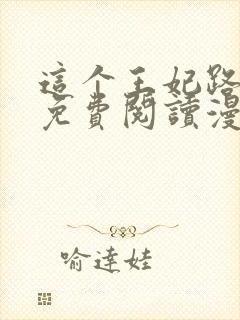 這个王妃路
免費閱讀漫
喻達娃